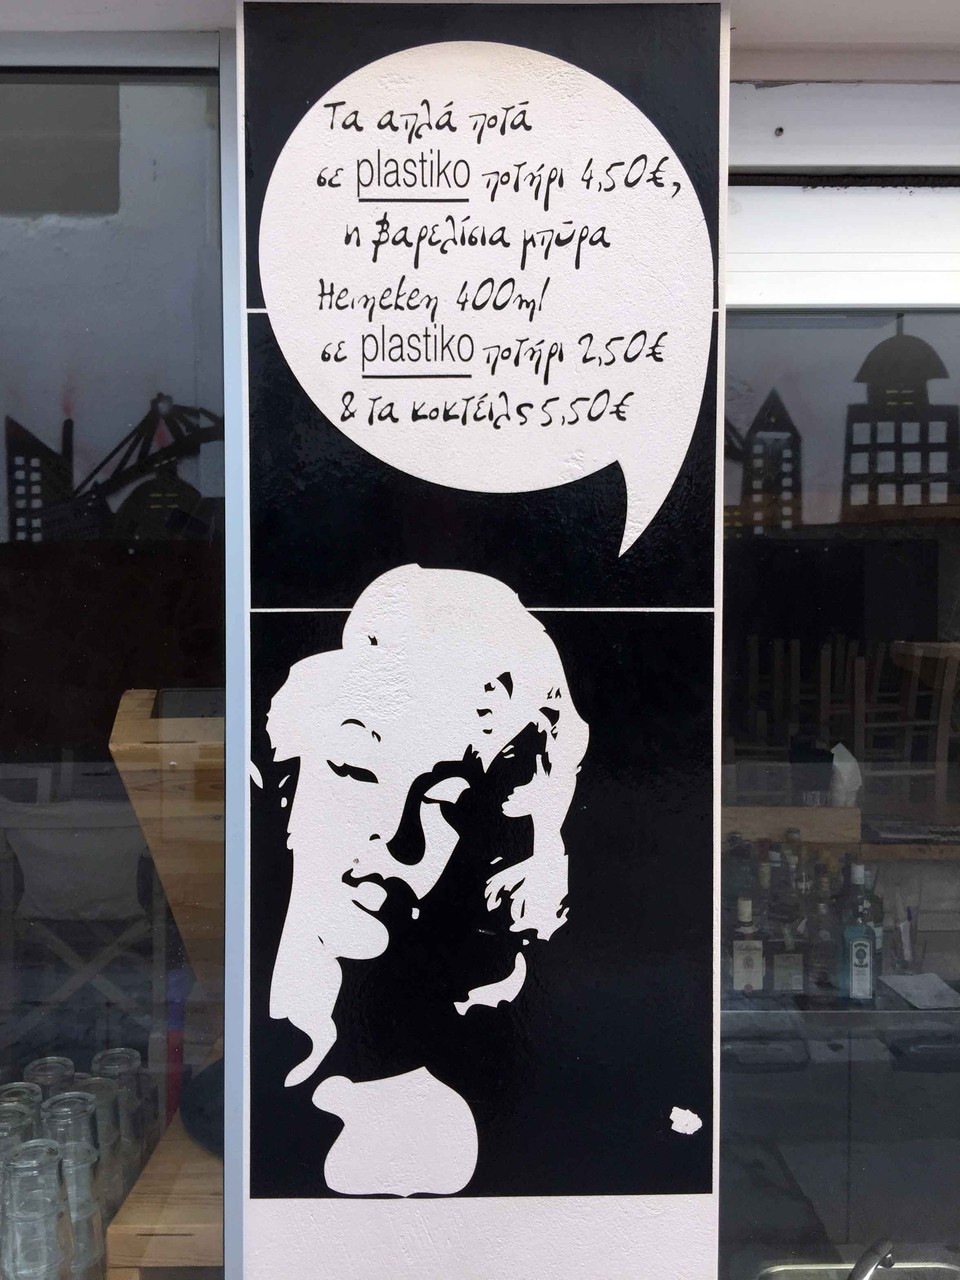 Τα απλά ποτά
σε plastiko ποτήρι 4,50€,
η βαρελίσια μπύρα
Heineken 400ml
σε plastiko ποτήρι 2,50€
& τα κοκτέιλς 5,50€